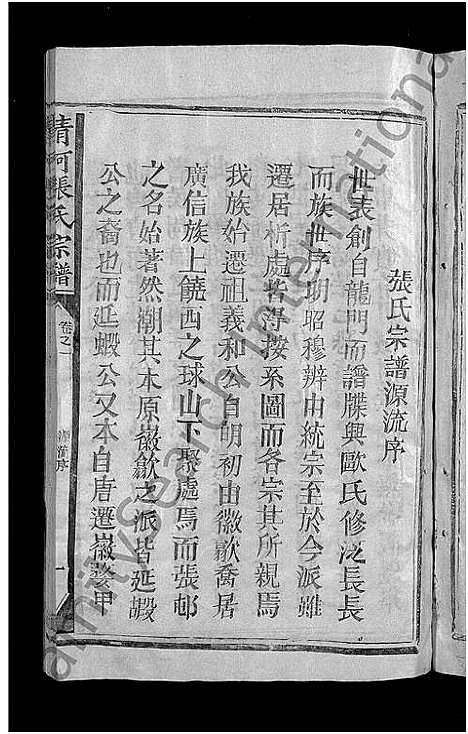 張氏宗譜源流序
世表創自龍門而譜牒興歐氏修泛長長
而族世序明昭穆辨由統宗至於今派雖
遷居析處皆得按系圖而各宗其所親焉
我族始遷祖義和公自明初由徽歙喬居
廣信族上饒西之球山下聚處焉而張邨
之名始著然溯其木原徽歙之派皆延嘏
公之裔也而延蝦公又本自唐遷徽婺甲
清河張氏宗譜
卷之一
源流序
一